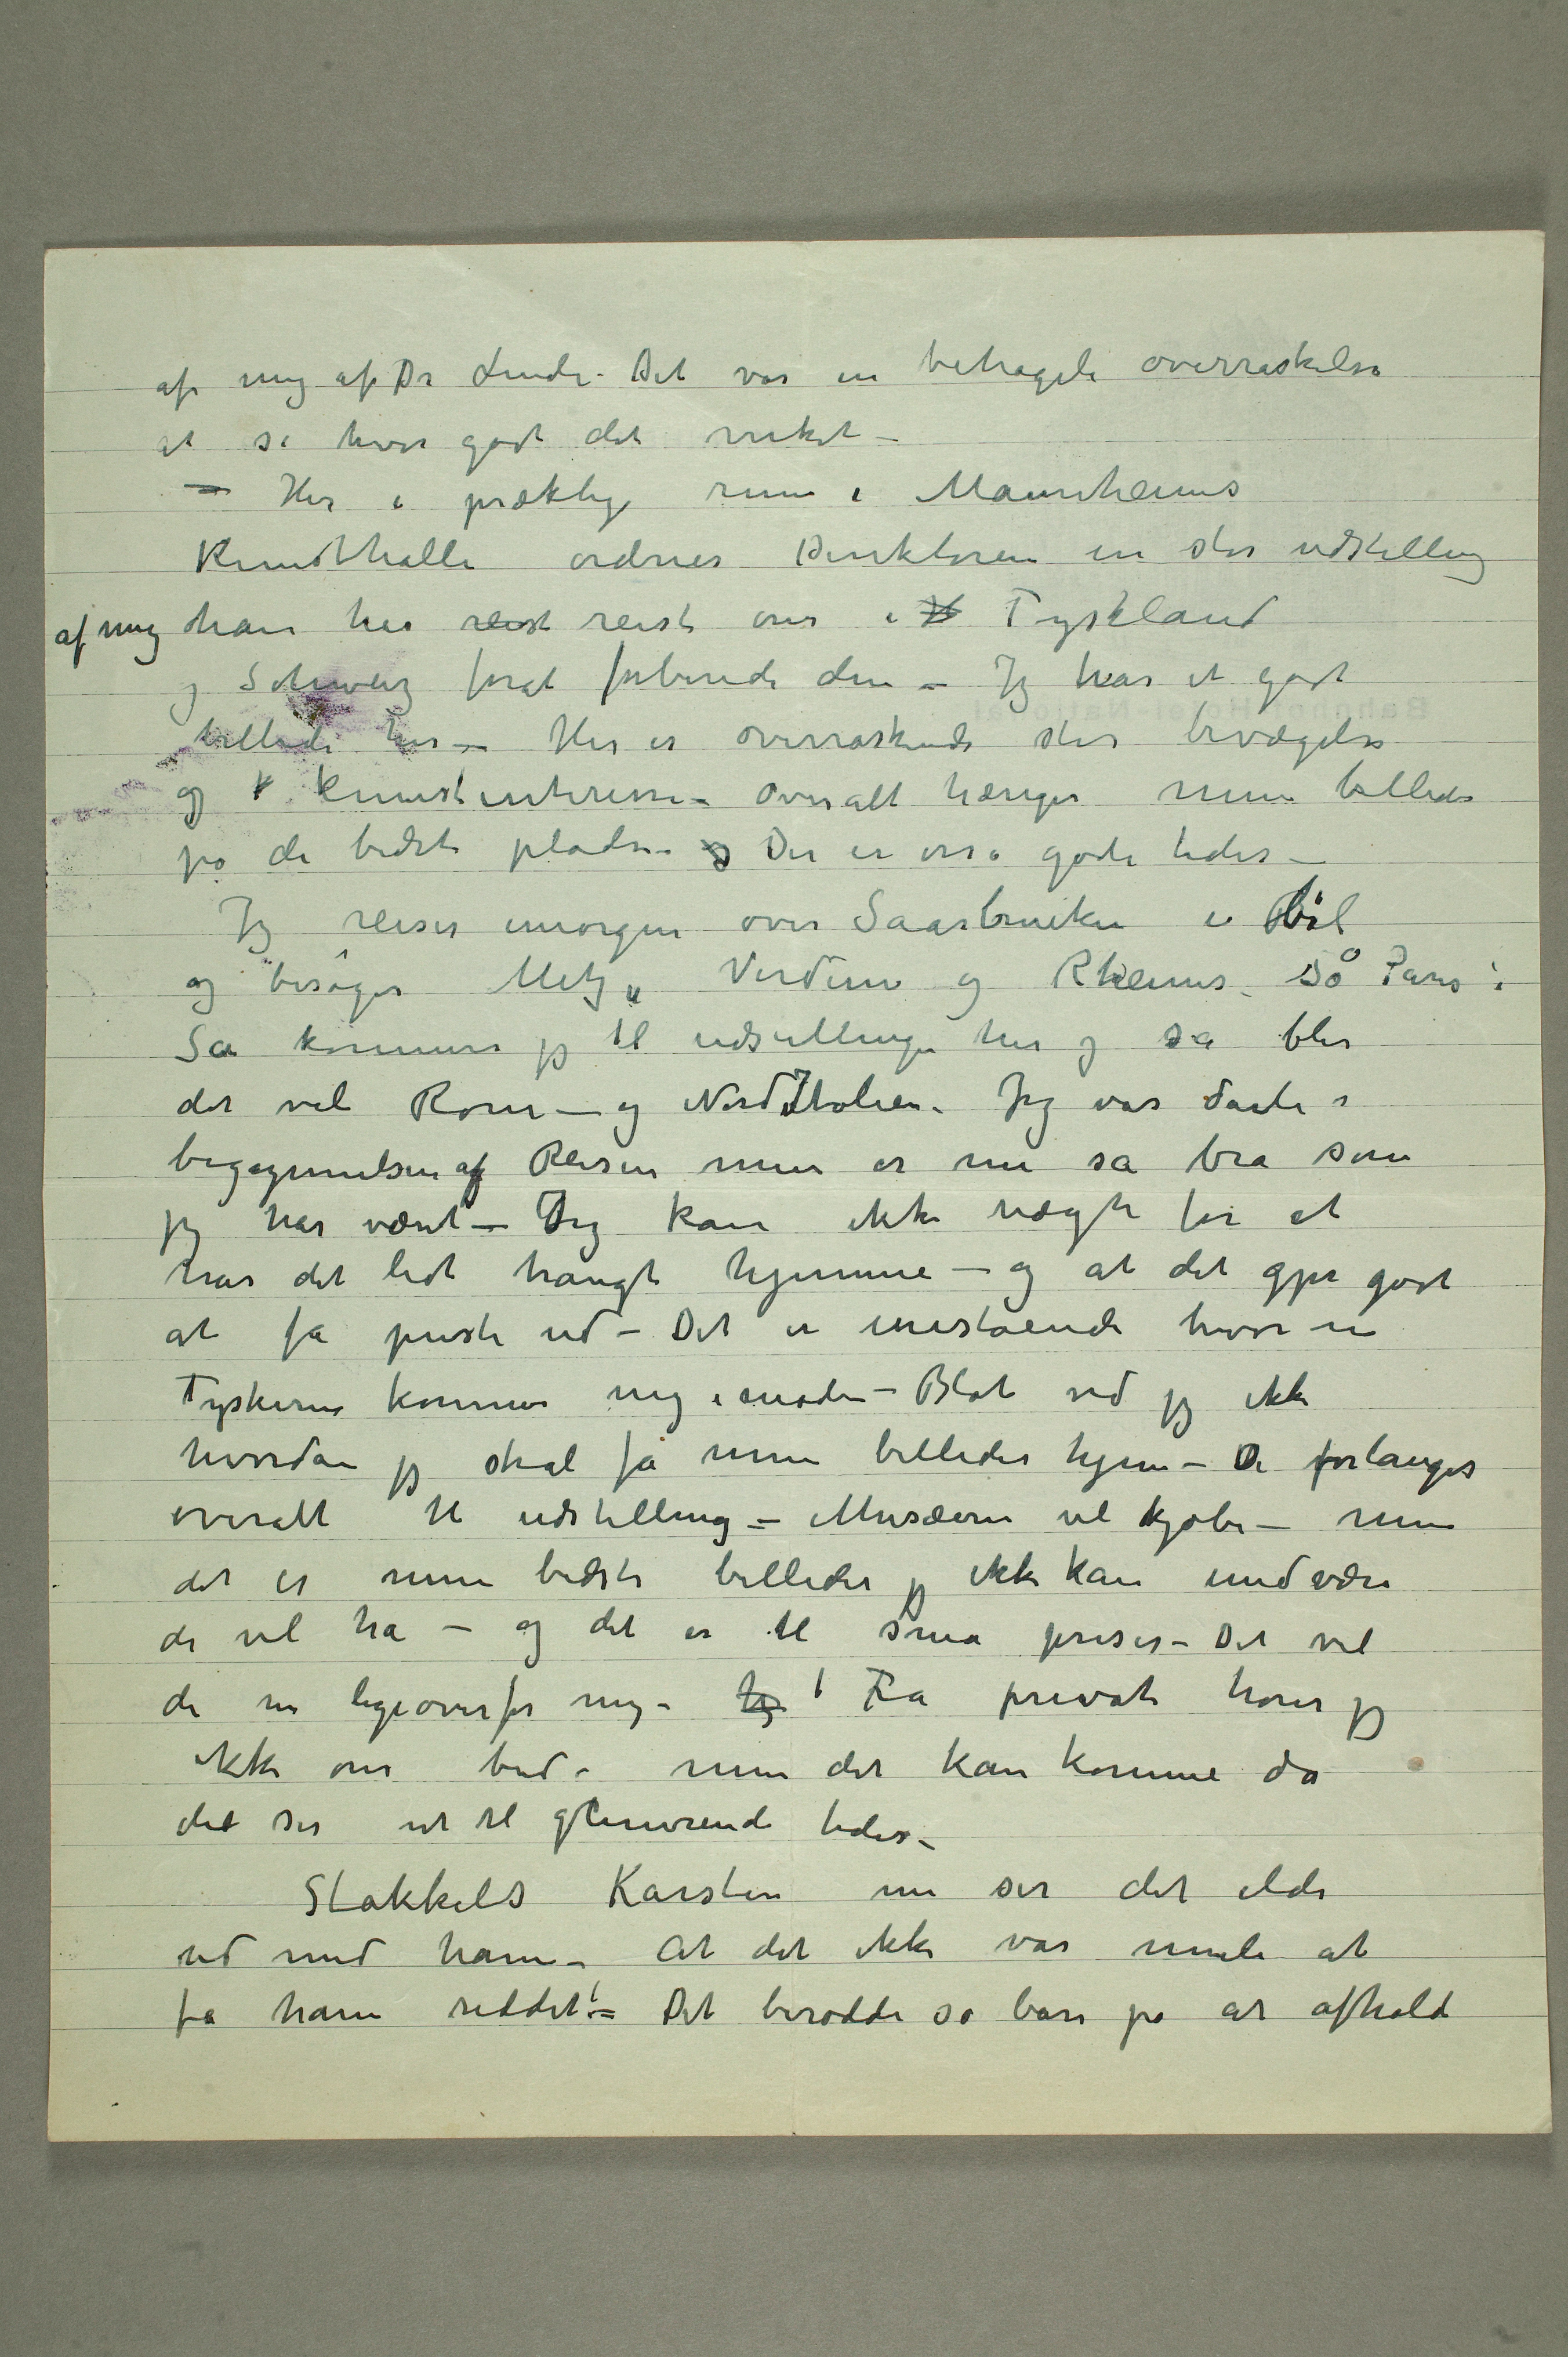 af mig af Dr Linde – Det var en behagele overraskelse
at se hvor godt det virket –
– Her i præktige rum i Mannheims
Kunsthalle ordner Direktøren en stor udstilling
af mig han har reist reist om i Tyskland
og Schweiz forat forberede den – Jeg har et godt
billede her – Her er overraskende stor bevægelse
og kunstinteresse – Overalt hænger mine billeder
på de bedste pladse – Der er osså gode tider –
Jeg reiser imorgen over Saarbrücken i Bil
og besøger Metz, Verdun og Rheims. Så Paris :
Så kommer jeg til udstillingen her og så blir
det vel Rom – og Nord Italien. Jeg var dårlig i
begygynnelsen af Reisen men er nu så bra som
jeg har været – Jeg kan ikke nægte for at
har det lidt trangt hjemme – og at det gjør godt
at få puste ud – Det er enestående hvor
Tyskerne kommer mig imøde – Blot ved jeg ikke
hvordan jeg skal få mine billeder hjem – De forlanges
overalt til udstilling – Musæerne vil kjøbe – men
det er mine bedste billeder jeg ikke kan undvære
de vil ha – og det er til små priser – Det vil
de nu ligeoverfor mig – Jeg Fra private hører jeg
ikke om bud – men det kan komme da
det ser ut til glimrende tider –
Stakkels Karsten nu ser det ilde
ud med ham – At det ikke var mule at
få ham reddet! – Det berodde så bare på at afhold